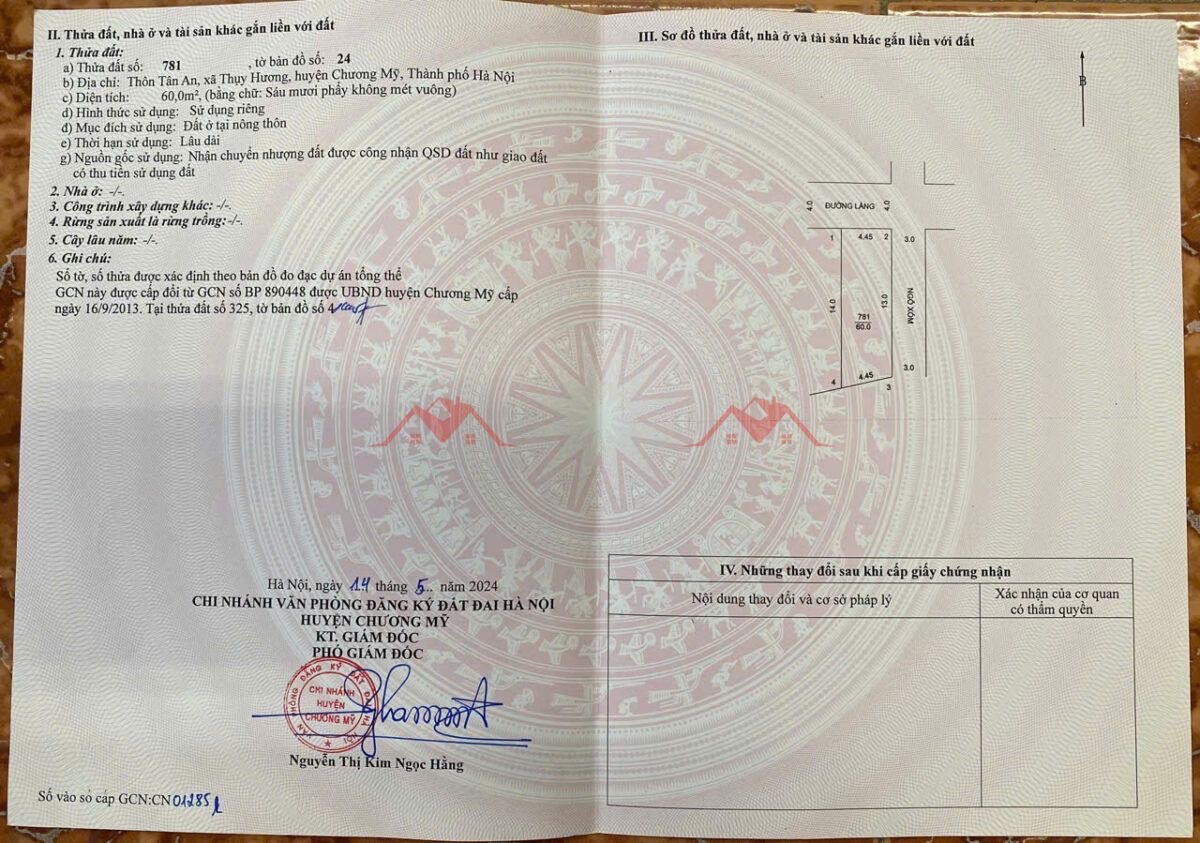 II. Thửa đất, nhà ở và tài sản khác gắn liền với đất
1. Thửa đất:
a) Thửa đất số: 781 , tờ bản đồ số: 24
b) Địa chỉ: Thôn Tân An, xã Thụy Hương, huyện Chương Mỹ, Thành phố Hà Nội
c) Diện tích: 60,0m², (bằng chữ: Sáu mươi phẩy không mét vuông)
d) Hình thức sử dụng: Sử dụng riêng
đ) Mục đích sử dụng: Đất ở tại nông thôn
e) Thời hạn sử dụng: Lâu dài
g) Nguồn gốc sử dụng: Nhận chuyển nhượng đất được công nhận QSD đất như giao đất
có thu tiền sử dụng đất
2. Nhà ở: -/-.
3. Công trình xây dựng khác: -/-.
4. Rừng sản xuất là rừng trồng:-/-.
5. Cây lâu năm: -/-.
6. Ghi chú:
Số tờ, số thửa được xác định theo bản đồ đo đạc dự án tổng thể
GCN này được cấp đổi từ GCN số BP 890448 được UBND huyện Chương Mỹ cấp
ngày 16/9/2013. Tại thửa đất số 325, tờ bản đồ số 4
Hà Nội, ngày 14 tháng 5... năm 2024
CHI NHÁNH VĂN PHÒNG ĐĂNG KÝ ĐẤT ĐAI HÀ NỘI
HUYỆN CHƯƠNG MỸ
KT. GIÁM ĐỐC
PHÓ GIÁM ĐỐC
VĂN PHÒNG ĐĂNG KÝ ĐẤT ĐAI HÀ NỘI
CHI NHÁNH
HUYỆN
CHƯƠNG MỸ
Nguyễn Thị Kim Ngọc Hằng
Số vào sổ cấp GCN:CN01285
III. Sơ đồ thửa đất, nhà ở và tài sản khác gắn liền với đất
B
4.0 ĐƯỜNG LÀNG 4.0
1 4.45 2 3.0
14.0 13.0 NGÕ XÓM
781
60.0
3.0
4 4.45 3
IV. Những thay đổi sau khi cấp giấy chứng nhận
Nội dung thay đổi và cơ sở pháp lý
Xác nhận của cơ quan
có thẩm quyền